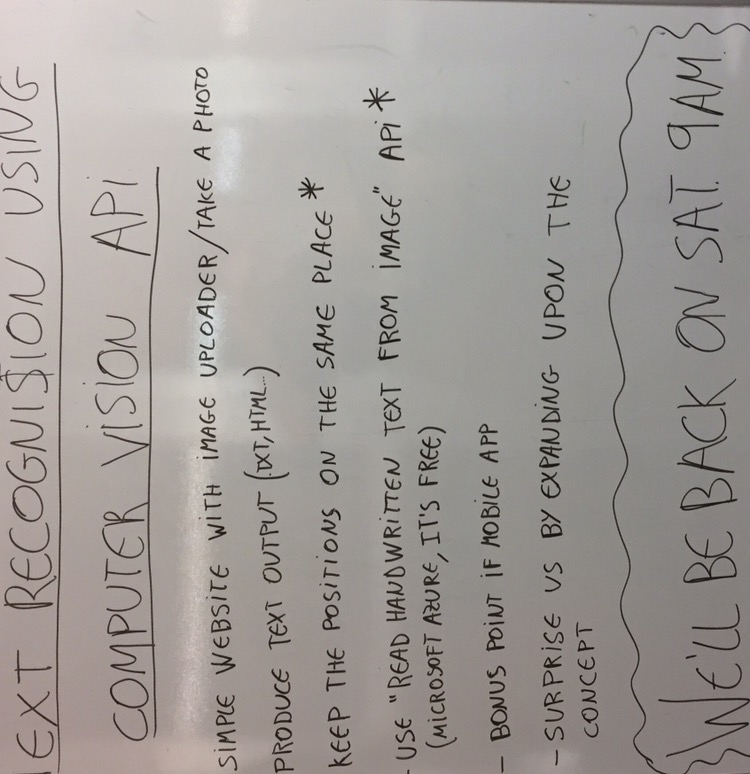 EXT RECOGNISION USING
COMPUTER VISION API
SIMPLE WEBSITE WITH IMAGE UPLOADER/TAKE A PHOTO
PRODUCE TEXT OUTPUT (TXT, HTML...)
KEEP THE POSITIONS ON THE SAME PLACE *
- USE "READ HANDWRITTEN TEXT FROM IMAGE" API *
(MICROSOFT AZURE, IT'S FREE)
- BONUS POINT IF MOBILE APP
- SURPRISE US BY EXPANDING UPON THE
CONCEPT
WE'LL BE BACK ON SAT. 9AM.